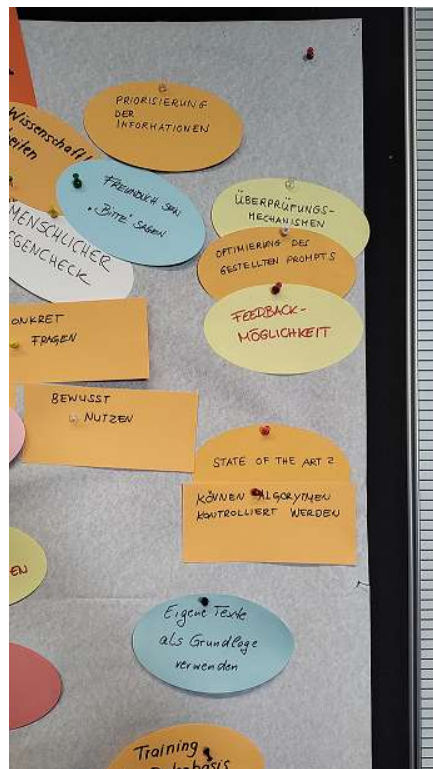 PRIORISIERUNG
DER
INFORMATIONEN
Wissenschaftl
eiten
FREUNDLICH SEIN
"BITTE" SAGEN
MENSCHLICHER
GEGENCHECK
ÜBERPRÜFUNGS-
MECHANISMEN
OPTIMIERUNG DES
GESTELLTEN PROMPTS
FEEDBACK-
MÖGLICHKEIT
ONKRET
FRAGEN
BEWUSST
NUTZEN
STATE OF THE ART ?
KÖNNEN ALGORYTMEN
KONTROLLIERT WERDEN
EN
Eigene Texte
als Grundlage
verwenden
Training